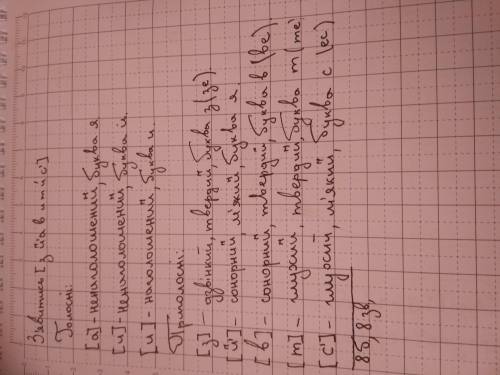 З'явитись [з йа в и т и́ с']
Голосні:
[а] - ненаголошений, буква я
[и] - ненаголошений, буква и.
[и] - наголошений, буква и.
Приголосні:
[з] - дзвінкий, твердий, буква з (зе)
[й] - сонорний, м'який, буква я.
[в] - сонорний, твердий, буква в (ве)
[т] - глухий, твердий, буква т (те)
[с'] - глухий, м'який, буква с (ес)
8б, 8 зв.